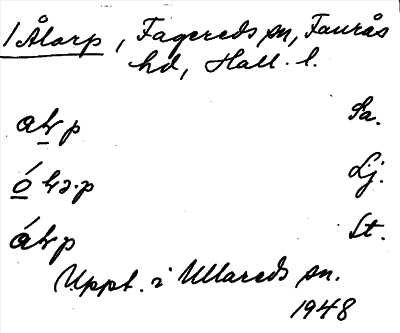 1 Ålarp, Fagereds sn, Faurås
hd, Hall. l.
Sa.
Lj.
St.
Uppt. i Ullareds sn.
1948